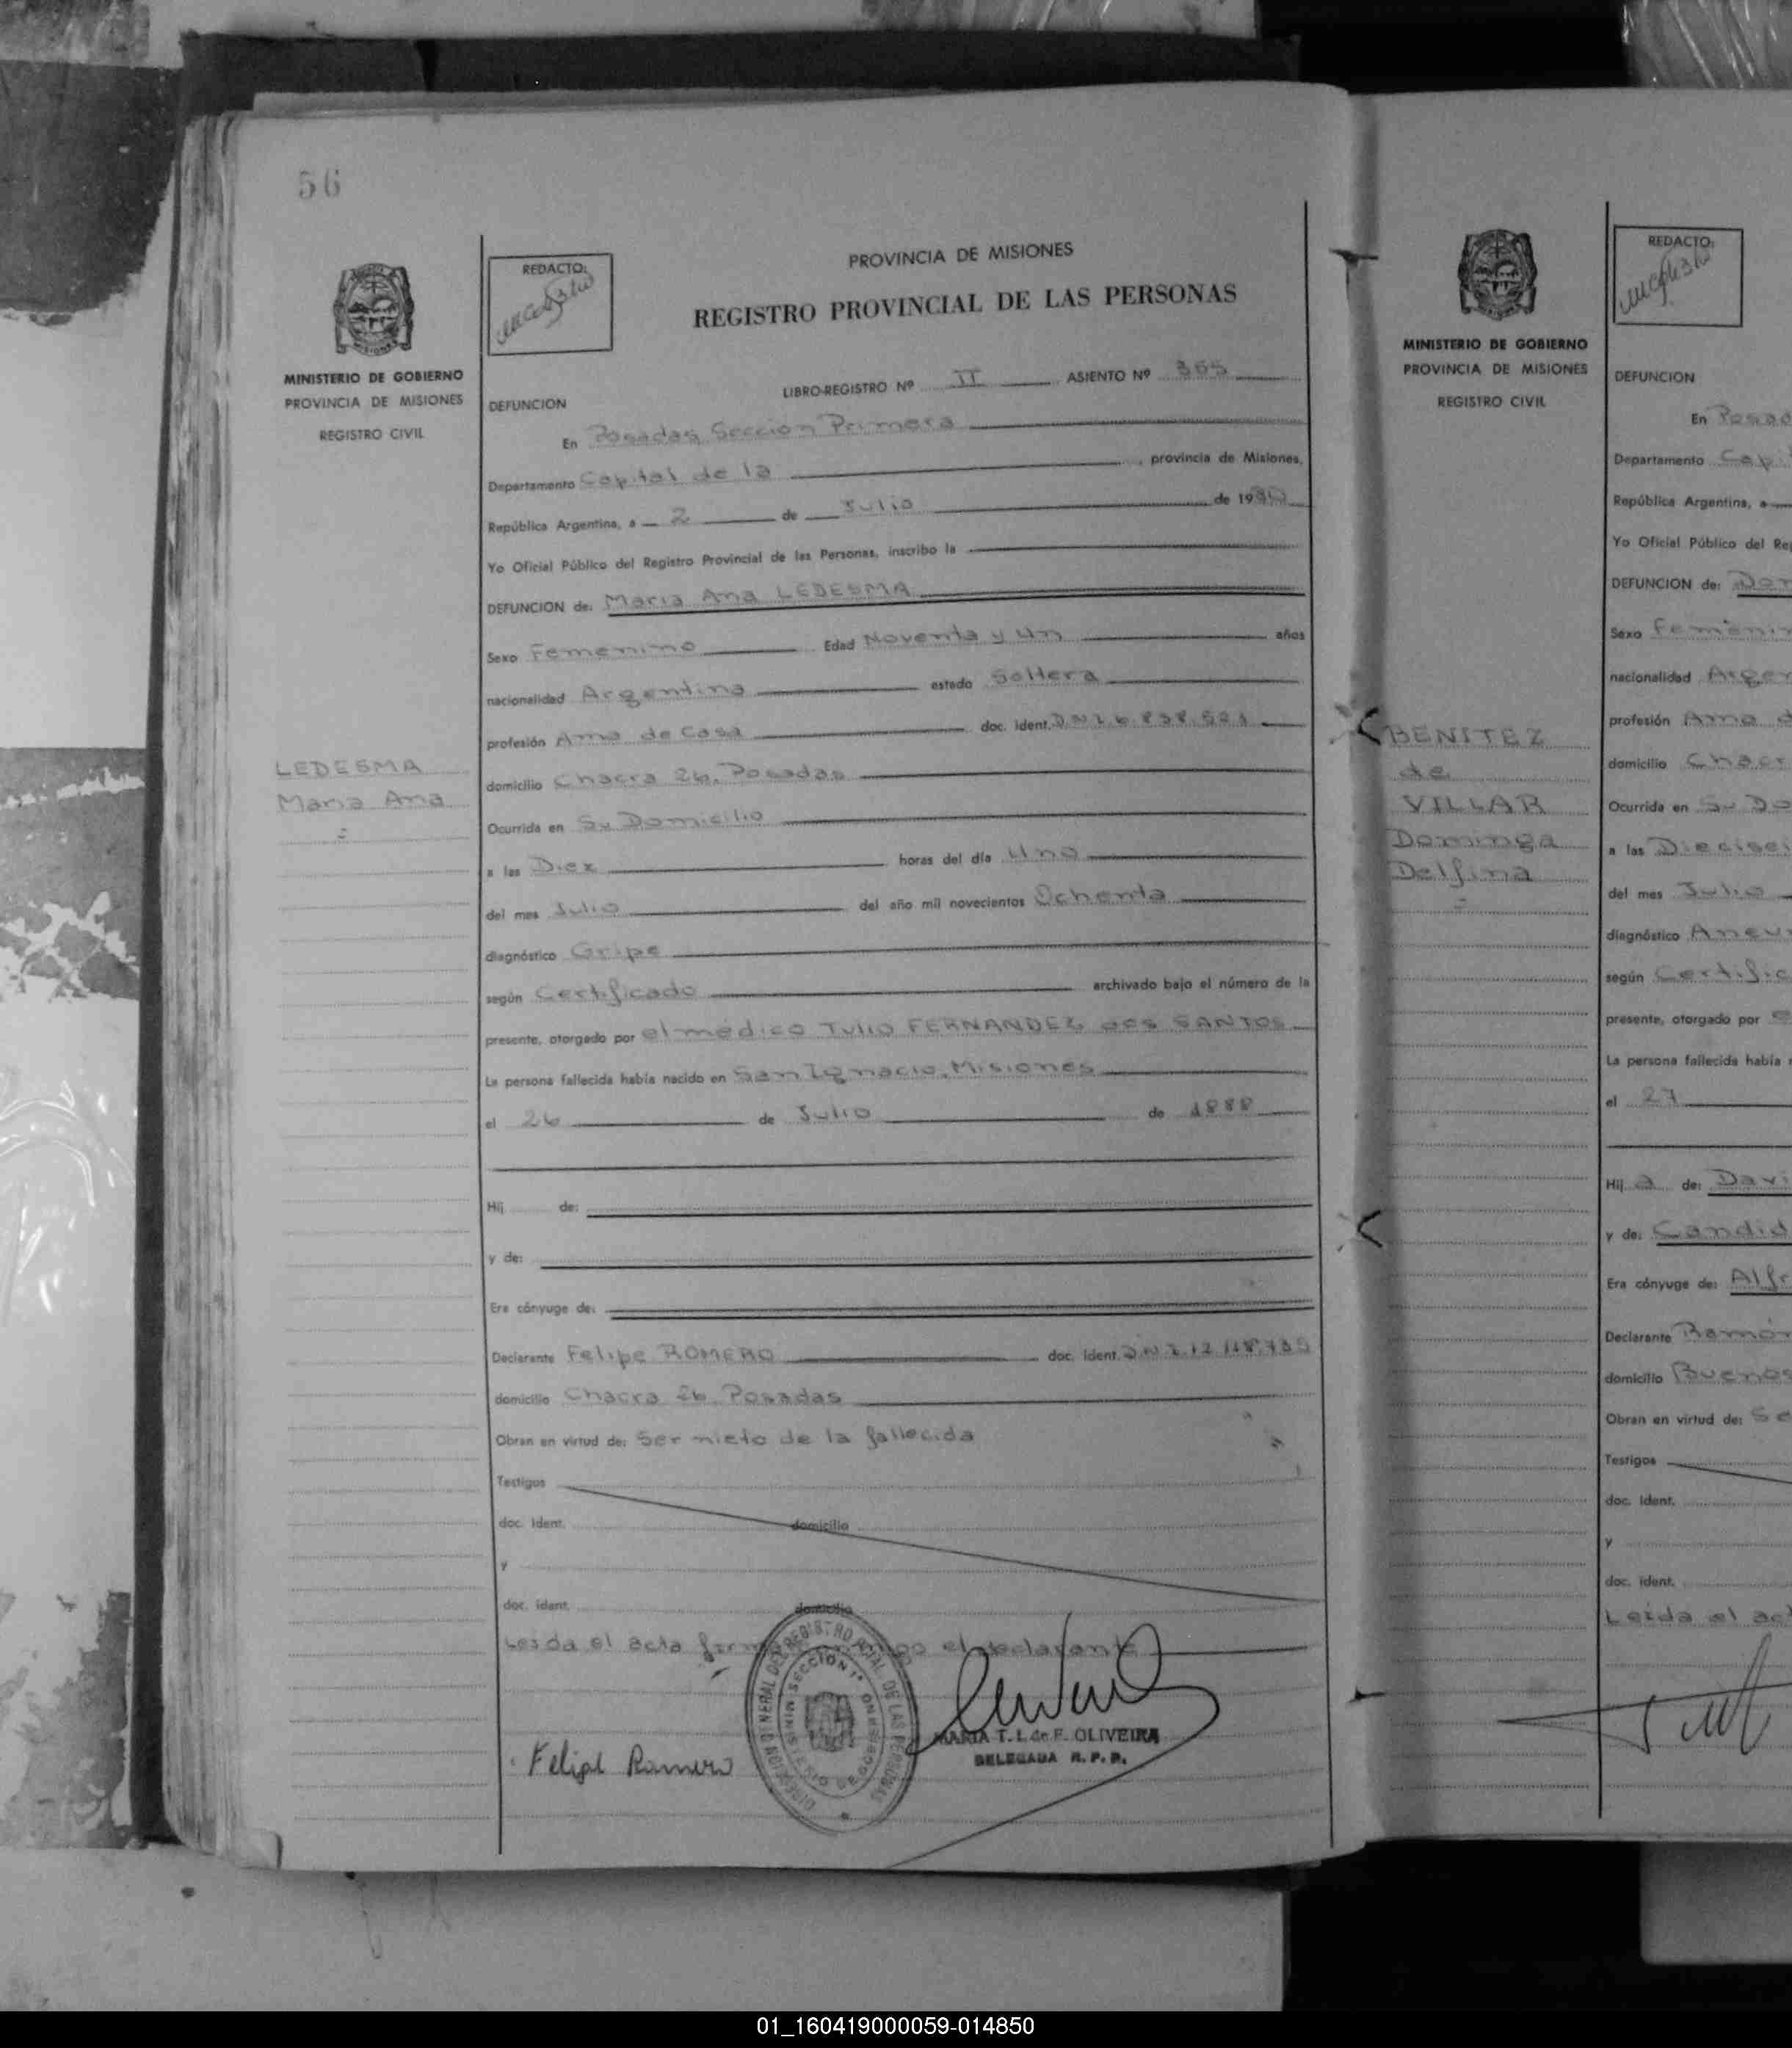 56
MINISTERIO DE GOBIERNO
PROVINCIA DE MISIONES
REGISTRO CIVIL
LEDESMA
Maria Ana
REDACTO:
PROVINCIA DE MISIONES
REGISTRO PROVINCIAL DE LAS PERSONAS
LIBRO-REGISTRO Nº II ASIENTO Nº 365
DEFUNCION
En Posadas Sección Primera
Departamento Capital de la , provincia de Misiones,
República Argentina, a 2 de Julio de 1980
Yo Oficial Público del Registro Provincial de las Personas, inscribo la
DEFUNCION de: Maria Ana LEDESMA
Sexo Femenino Edad Noventa y un años
nacionalidad Argentina estado Soltera
profesión Ama de Casa doc. ident. DNI 6.838.521
domicilio Chacra 26. Posadas
Ocurrida en Su Domicilio
a las Diez horas del día Uno
del mes Julio del año mil novecientos Ochenta
diagnóstico Gripe
según Certificado archivado bajo el número de la
presente, otorgado por el médico Tulio FERNANDEZ dos SANTOS
La persona fallecida había nacido en San Ignacio, Misiones
el 26 de Julio de 1888
Hij de:
y de:
Era cónyuge de:
Declarante Felipe ROMERO doc. ident. DNI 12.118.735
domicilio Chacra 26. Posadas
Obran en virtud de: Ser nieto de la fallecida
Testigos
doc. ident. domicilio
y
doc. ident. domicilio
Leida el acta el declarante
Felipe Romero
MARIA T. L. de F. OLIVEIRA
DELEGADA R. P. P.
MINISTERIO DE GOBIERNO
PROVINCIA DE MISIONES
REGISTRO CIVIL
BENITEZ
de
VILLAR
Dominga
Delfina
REDACTO:
DEFUNCION
En
Departamento
República Argentina, a
Yo Oficial Público del
DEFUNCION de:
Sexo
nacionalidad
profesión Ama
domicilio
Ocurrida en Su
a las
del mes Julio
diagnóstico
según
presente, otorgado por
La persona fallecida había
el 27
Hij a de:
y de:
Era cónyuge de:
Declarante Ramón
domicilio Buenos
Obran en virtud de:
Testigos
doc. ident.
y
doc. ident.
Leida el
01_160419000059-014850